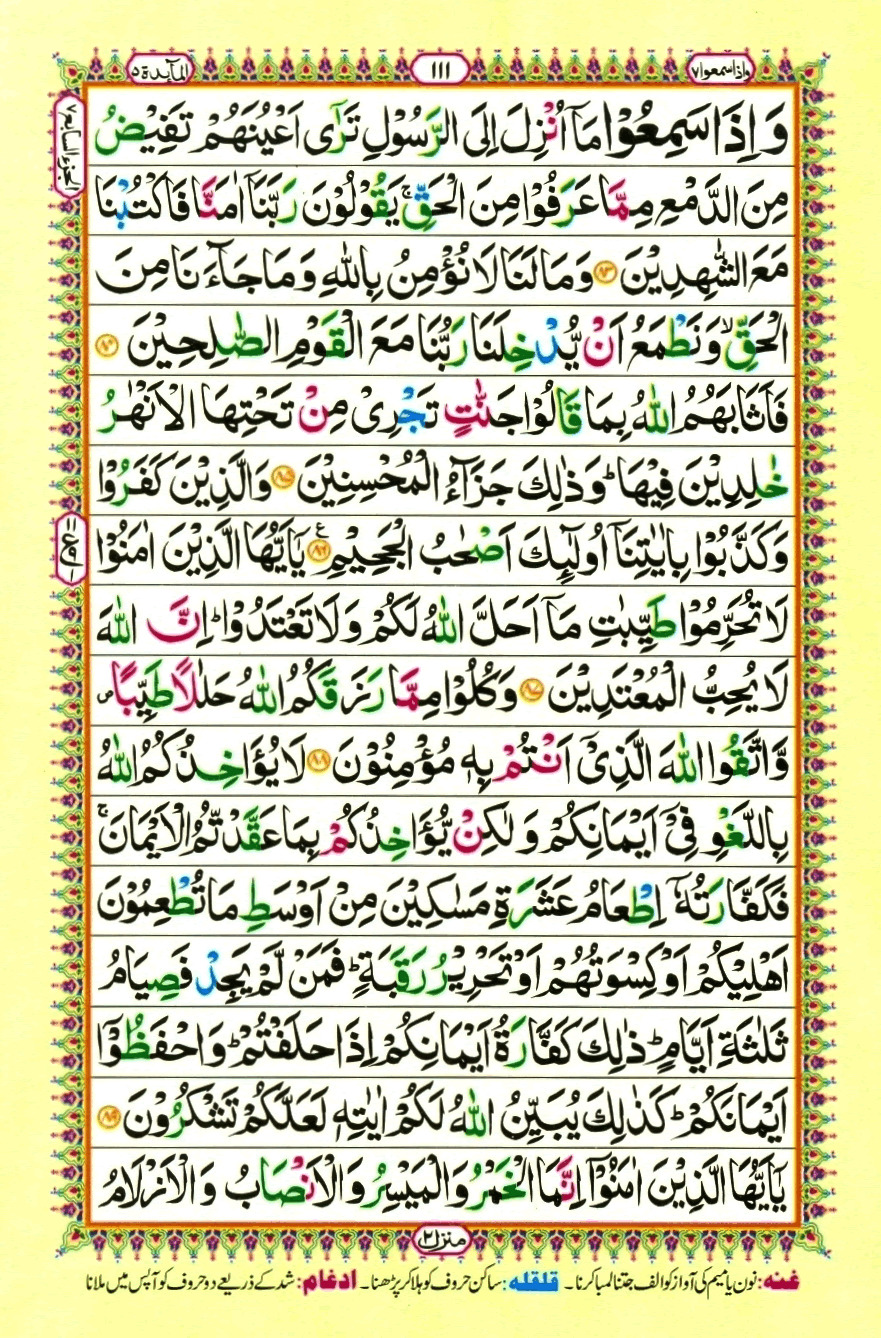 واذا سمعوا ٧
١١١
المآىِٕدة ٥
الجزء السابع ٧
وَ اِذَا سَمِعُوْا مَاۤ اُنْزِلَ اِلَى الرَّسُوْلِ تَرٰۤى اَعْیُنَهُمْ تَفِیْضُ
مِنَ الدَّمْعِ مِمَّا عَرَفُوْا مِنَ الْحَقِّ ۚ یَقُوْلُوْنَ رَبَّنَاۤ اٰمَنَّا فَاكْتُبْنَا
مَعَ الشّٰهِدِیْنَ ۝۸۳ وَ مَا لَنَا لَا نُؤْمِنُ بِاللّٰهِ وَ مَا جَآءَنَا مِنَ
الْحَقِّ ۙ وَ نَطْمَعُ اَنْ یُّدْخِلَنَا رَبُّنَا مَعَ الْقَوْمِ الصّٰلِحِیْنَ ۝۸۴
فَاَثَابَهُمُ اللّٰهُ بِمَا قَالُوْا جَنّٰتٍ تَجْرِیْ مِنْ تَحْتِهَا الْاَنْهٰرُ
خٰلِدِیْنَ فِیْهَا ؕ وَ ذٰلِكَ جَزَآءُ الْمُحْسِنِیْنَ ۝۸۵ وَ الَّذِیْنَ كَفَرُوْا
وَ كَذَّبُوْا بِاٰیٰتِنَاۤ اُولٰٓىِٕكَ اَصْحٰبُ الْجَحِیْمِ ۝۸۶ یٰۤاَیُّهَا الَّذِیْنَ اٰمَنُوْا
لَا تُحَرِّمُوْا طَیِّبٰتِ مَاۤ اَحَلَّ اللّٰهُ لَكُمْ وَ لَا تَعْتَدُوْا ؕ اِنَّ اللّٰهَ
لَا یُحِبُّ الْمُعْتَدِیْنَ ۝۸۷ وَ كُلُوْا مِمَّا رَزَقَكُمُ اللّٰهُ حَلٰلًا طَیِّبًا ۪
وَّ اتَّقُوا اللّٰهَ الَّذِیْۤ اَنْتُمْ بِهٖ مُؤْمِنُوْنَ ۝۸۸ لَا یُؤَاخِذُكُمُ اللّٰهُ
بِاللَّغْوِ فِیْۤ اَیْمَانِكُمْ وَ لٰكِنْ یُّؤَاخِذُكُمْ بِمَا عَقَّدْتُّمُ الْاَیْمَانَ ۚ
فَكَفَّارَتُهٗۤ اِطْعَامُ عَشَرَةِ مَسٰكِیْنَ مِنْ اَوْسَطِ مَا تُطْعِمُوْنَ
اَهْلِیْكُمْ اَوْ كِسْوَتُهُمْ اَوْ تَحْرِیْرُ رَقَبَةٍ ؕ فَمَنْ لَّمْ یَجِدْ فَصِیَامُ
ثَلٰثَةِ اَیَّامٍ ؕ ذٰلِكَ كَفَّارَةُ اَیْمَانِكُمْ اِذَا حَلَفْتُمْ ؕ وَ احْفَظُوْۤا
اَیْمَانَكُمْ ؕ كَذٰلِكَ یُبَیِّنُ اللّٰهُ لَكُمْ اٰیٰتِهٖ لَعَلَّكُمْ تَشْكُرُوْنَ ۝۸۹
یٰۤاَیُّهَا الَّذِیْنَ اٰمَنُوْۤا اِنَّمَا الْخَمْرُ وَ الْمَیْسِرُ وَ الْاَنْصَابُ وَ الْاَزْلَامُ
منزل ٢
غنه: نون یا میم کی آواز کو الف جتنا لمبا کرنا۔ قلقله: ساکن حروف کو ہلا کر پڑھنا۔ ادغام: شد کے ذریعے دو حروف کو آپس میں ملانا